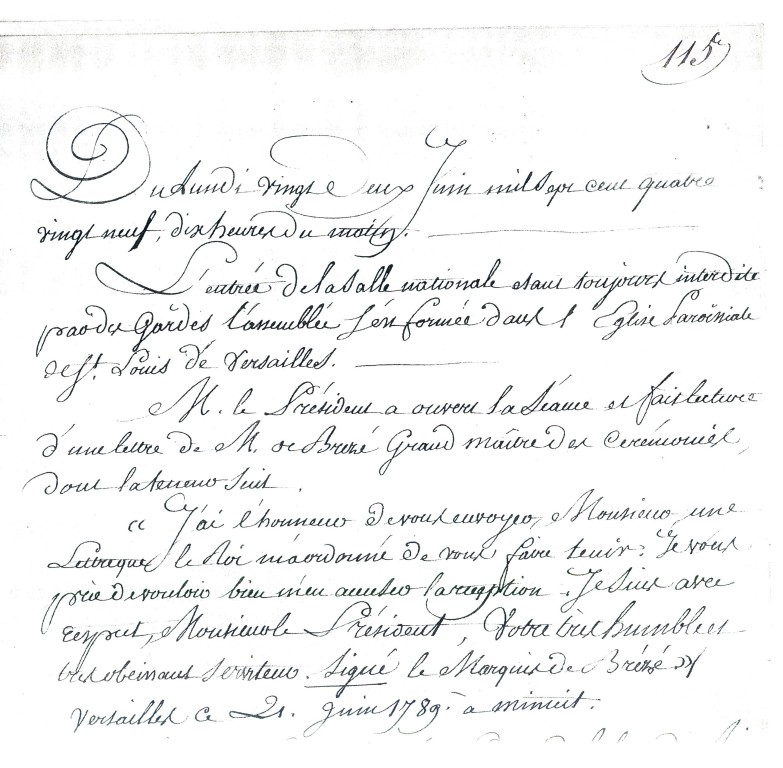 115
Du Lundi vingt Deux Juin mil Sept cent quatre
vingt neuf, dix heures du matin.
L'entrée de la Salle nationale etant toujours interdite
par des Gardes l'assemblée s'est formée dans l'Eglise Paroissiale
de St. Louis de Versailles.
M. le Président a ouvert la Séance et fait lecture
d'une lettre de M. de Brezé Grand maître des Cerémonies,
dont la teneur suit.
« J'ai l'honneur de vous envoyer, Monsieur, une
Lettre que le Roi m'a ordonné de vous faire tenir. Je vous
prie de vouloir bien m'en accuser la reception. Je Suis avec
respect, Monsieur le Président, Votre tres humble et
tres obeissant Serviteur. Signé le Marquis de Brézé »
Versailles ce 21. Juin 1789. à minuit.